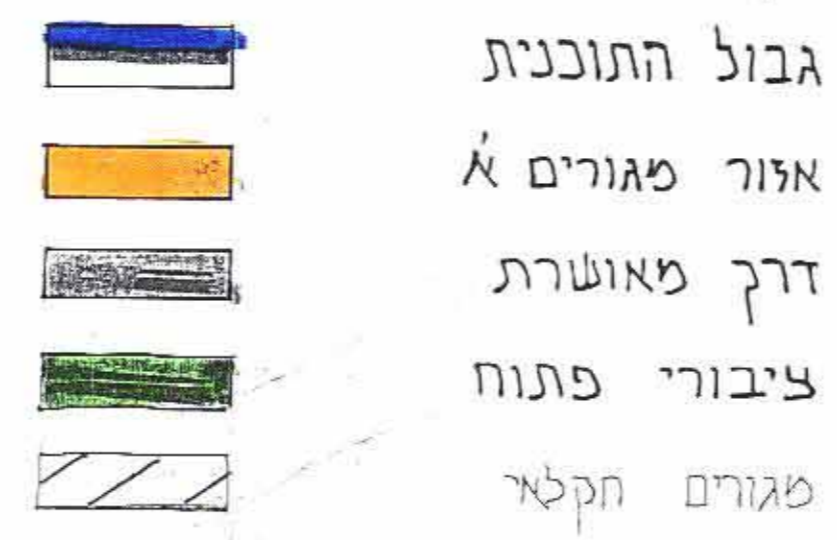 גבול התוכנית
אזור מגורים א'
דרך מאושרת
ציבורי פתוח
מגורים חקלאי